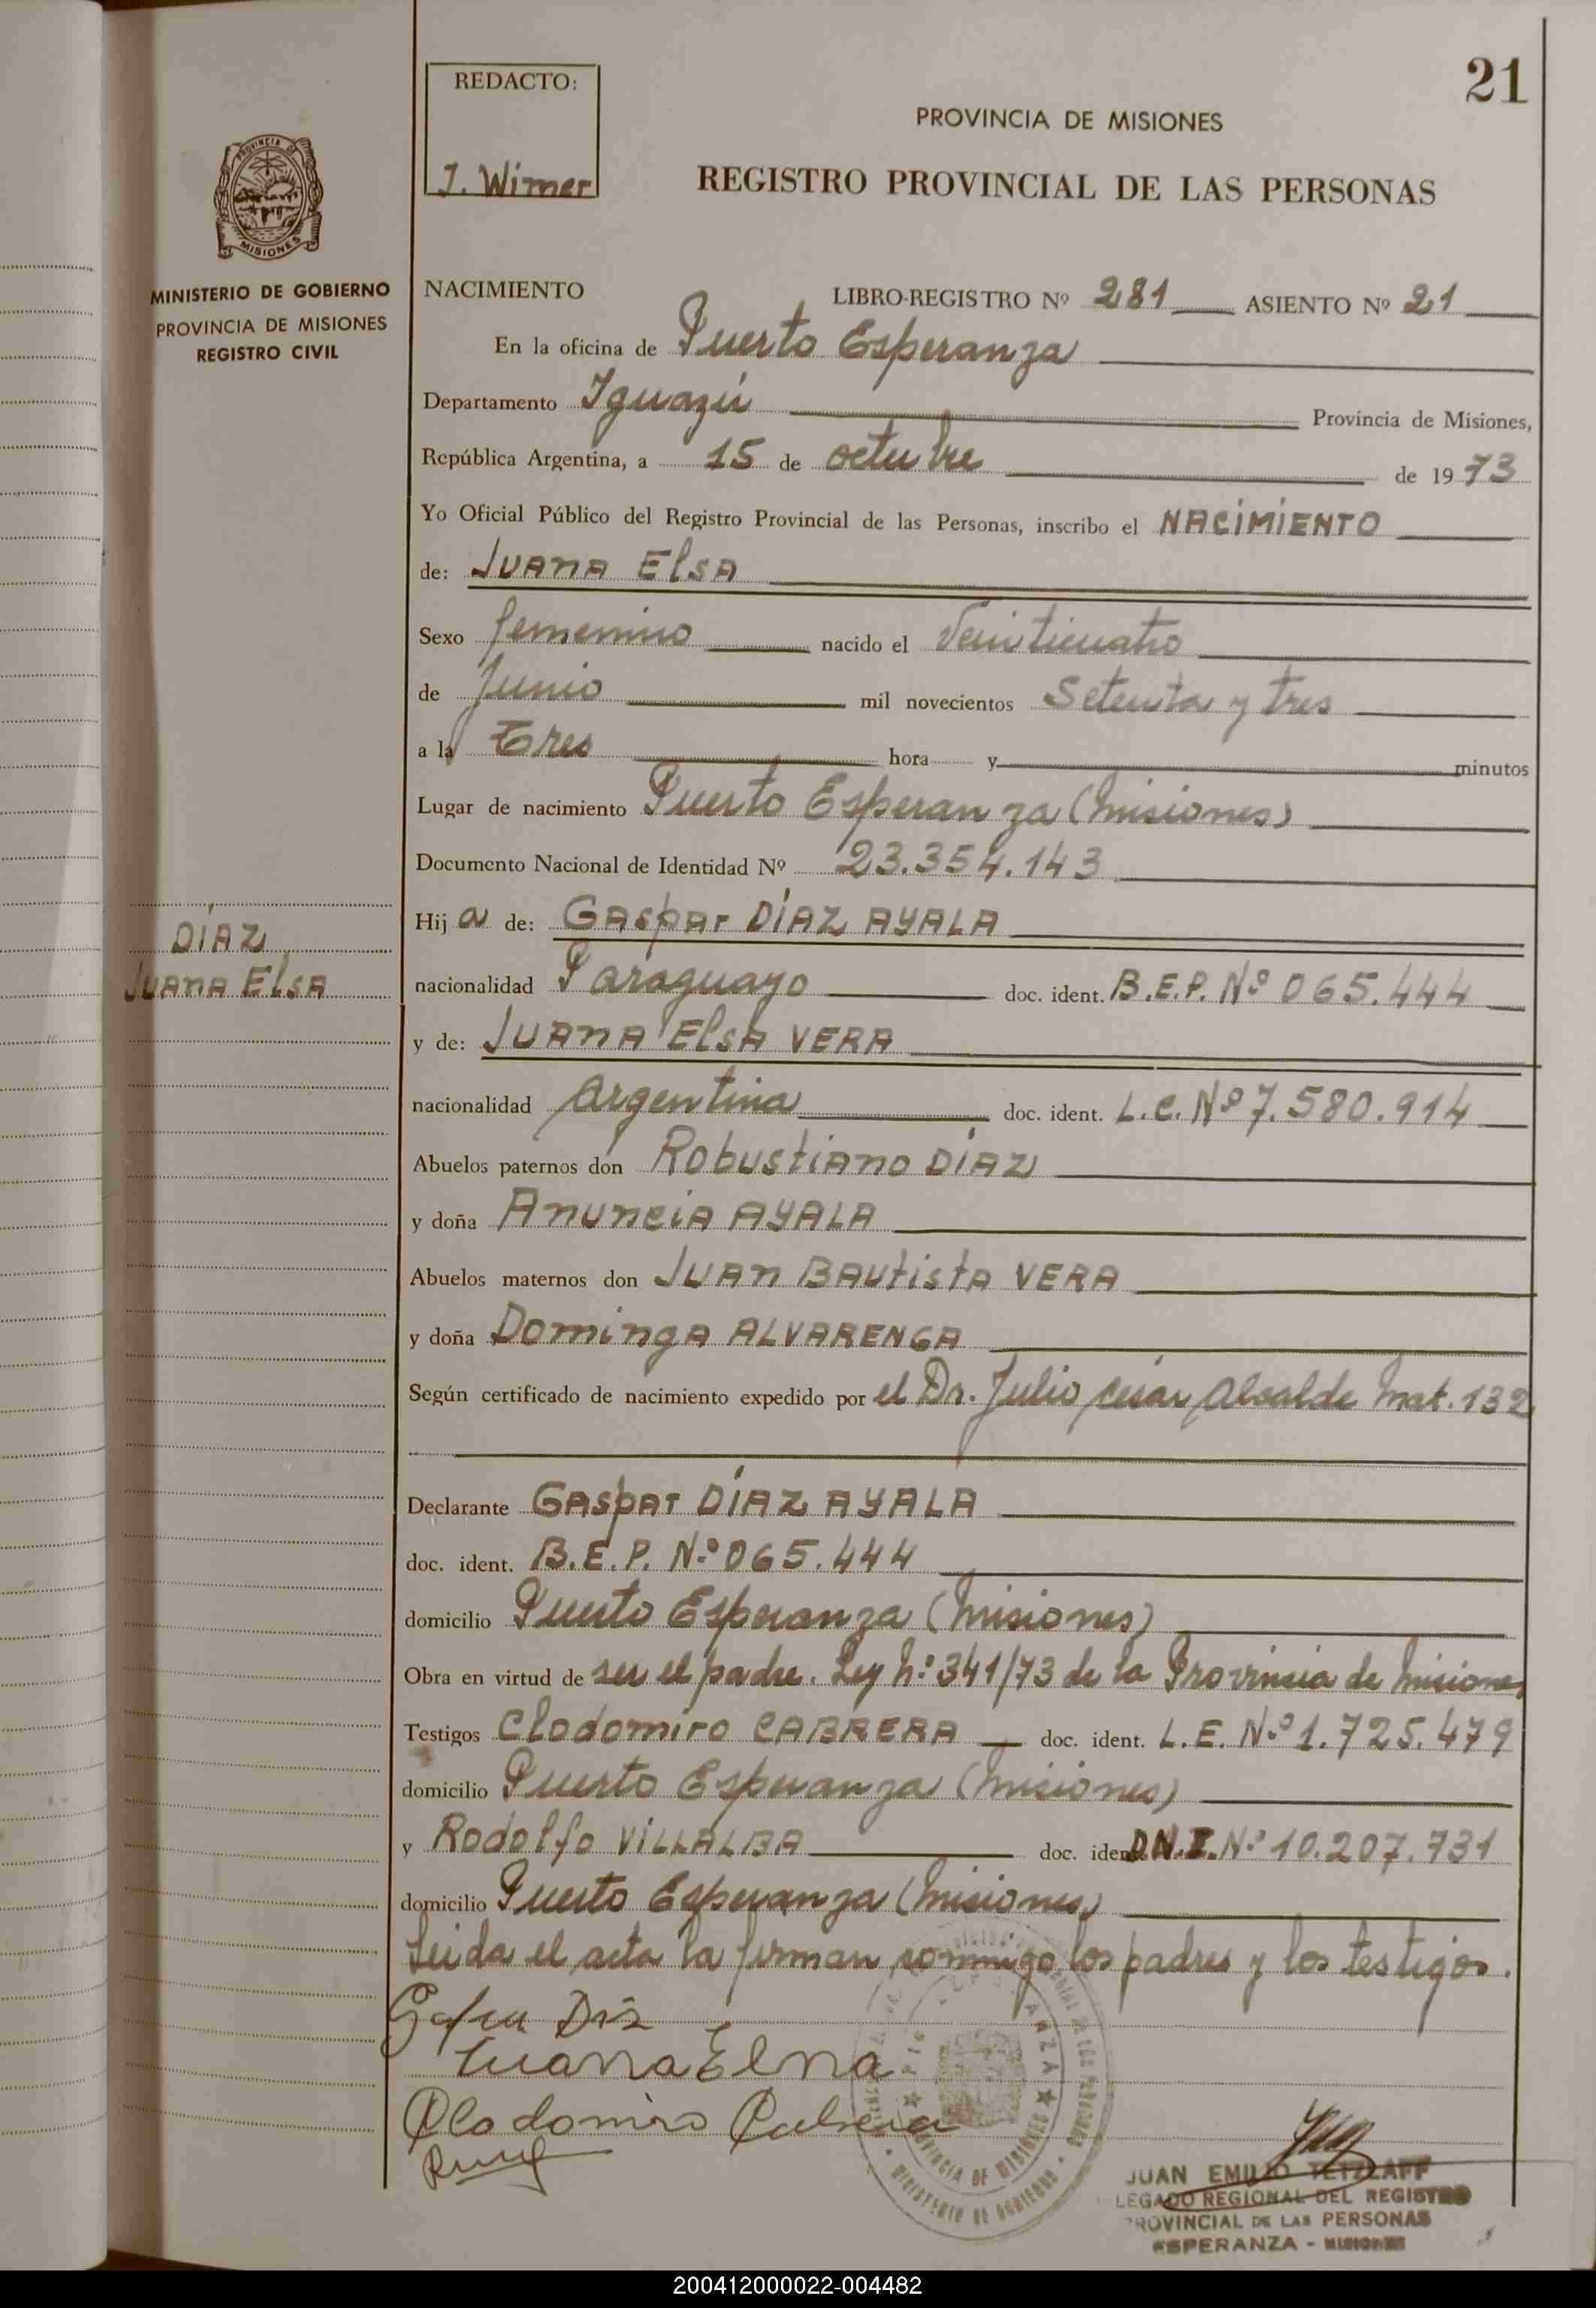 21
REDACTO:
J. Wimer
PROVINCIA DE MISIONES
REGISTRO PROVINCIAL DE LAS PERSONAS
PROVINCIA DE
MISIONES
MINISTERIO DE GOBIERNO
PROVINCIA DE MISIONES
REGISTRO CIVIL
NACIMIENTO LIBRO-REGISTRO Nº 281 ASIENTO Nº 21
En la oficina de Puerto Esperanza
Departamento Iguazú Provincia de Misiones,
República Argentina, a 15 de octubre de 1973
Yo Oficial Público del Registro Provincial de las Personas, inscribo el NACIMIENTO
de: JUANA ELSA
Sexo femenino nacido el Veinticuatro
de Junio mil novecientos Setenta y tres
a la Tres hora y minutos
Lugar de nacimiento Puerto Esperanza (Misiones)
Documento Nacional de Identidad Nº 23.354.143
DÍAZ
JUANA ELSA
Hija de: GASPAR DÍAZ AYALA
nacionalidad Paraguayo doc. ident. B.E.P. Nº 065.444
y de: JUANA ELSA VERA
nacionalidad Argentina doc. ident. L.C. Nº 7.580.914
Abuelos paternos don Robustiano DÍAZ
y doña Anuncia AYALA
Abuelos maternos don JUAN BAUTISTA VERA
y doña Dominga ALVARENGA
Según certificado de nacimiento expedido por el Dr. Julio César Alcalde Mat. 132
Declarante GASPAR DÍAZ AYALA
doc. ident. B.E.P. Nº 065.444
domicilio Puerto Esperanza (Misiones)
Obra en virtud de ser el padre. Ley Nº 341/73 de la Provincia de Misiones
Testigos Clodomiro CABRERA doc. ident. L.E. Nº 1.725.479
domicilio Puerto Esperanza (Misiones)
y Rodolfo VILLALBA doc. ident. D.N.I. Nº 10.207.731
domicilio Puerto Esperanza (Misiones)
Leida el acta la firman conmigo los padres y los testigos.
Juana Elna
Clodomiro Cabrera
PROVINCIA DE MISIONES
MINISTERIO DE GOBIERNO
JUAN EMILIO TETZLAFF
LEGADO REGIONAL DEL REGISTRO
PROVINCIAL DE LAS PERSONAS
ESPERANZA - MISIONES
200412000022-004482